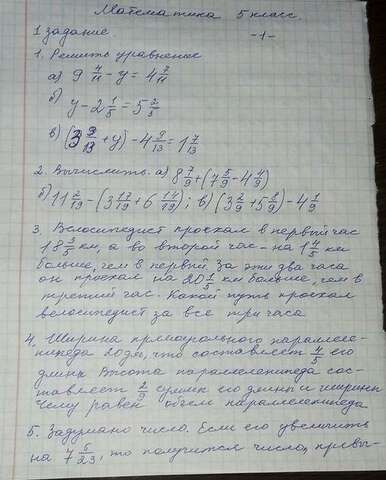 Математика 5 класс.
1 задание. -1-
1. Решить уравнение
а) 9 4/11 - y = 4 7/11
б) y - 2 1/5 = 5 2/5
в) (3 9/13 + y) - 4 9/13 = 1 7/13
2. Вычислить. а) 8 7/9 + (7 5/9 - 4 4/9)
б) 11 2/19 - (3 17/19 + 6 14/19); в) (3 2/9 + 5 8/9) - 4 1/9
3. Велосипедист проехал в первый час
18 3/5 км, а во второй час - на 1 4/5 км
больше, чем в первый. За эти два часа
он проехал на 20 1/5 км больше, чем в
третий час. Какой путь проехал
велосипедист за все три часа
4. Ширина прямоугольного параллеле-
пипеда 20дм, что составляет 4/5 его
длины. Высота параллелепипеда сос-
тавляет 2/9 суммы его длины и ширины
Чему равен объем параллелепипеда
5. Задумано число. Если его увеличить
на 7 6/23, то получится число, превы-